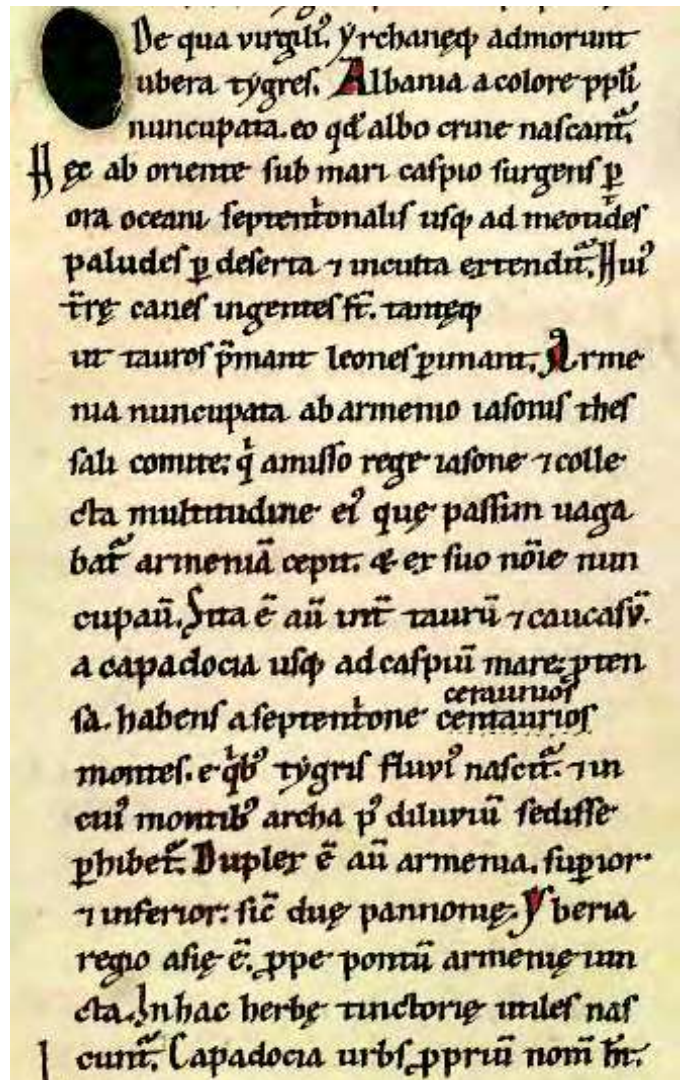 De qua virgili᷒. yrchanęq; admorunt
ubera tygres. Albania a colore ppl̄i
nuncupata. eo qđ albo crine nascant᷑.
Hęc ab oriente sub mari caspio surgens ꝑ
ora oceani septent̍onalis usq; ad meotides
paludes ꝑ deserta ⁊ inculta extendit᷑. Hui᷒
tr̄ę canes ingentes st̄. tantęq;
ut tauros p̄mant leones ꝑimant. Arme
nia nuncupata ab armenio iasonis thes
sali comite; q̍ amisso rege iasone ⁊ colle
cta multitudine ei᷒ quę passim uaga
bat᷑ armeniā cepit. & ex suo nōie nun
cupau̅. Sita ē au̅ int̄ taurū ⁊ caucasv̄.
a capadocia usq; ad caspiū mare; ꝓten
sa. habens a septent̍one centaurios
ceraunios
montes. e q̍b᷒ tygris fluvi᷒ nascit᷑. ⁊ in
cui᷒ montib᷒ archa p᷒ diluviū sedisse
ꝑhibet᷑. Duplex ē au̅ armenia. suꝑior
⁊ inferior: sic̄ duę pannonię. Yberia
regio asię ē. ꝓpe pontū armenię iun
cta. In hac herbę tinctorię utiles nas
cunt᷑. Capadocia urbs ꝓpriū nom̄ ħt.